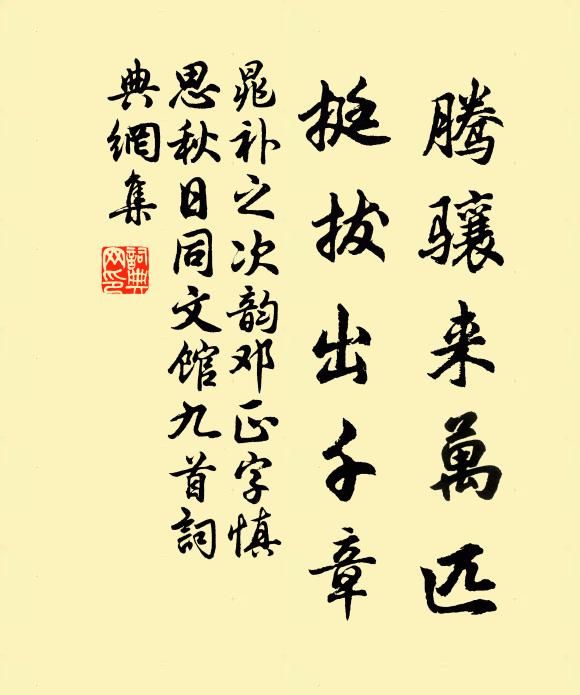 腾骧来萬匹
挺拔出千章
晁补之次韵邓正字慎
思秋日同文馆九首詞
典網集
詞典
网印